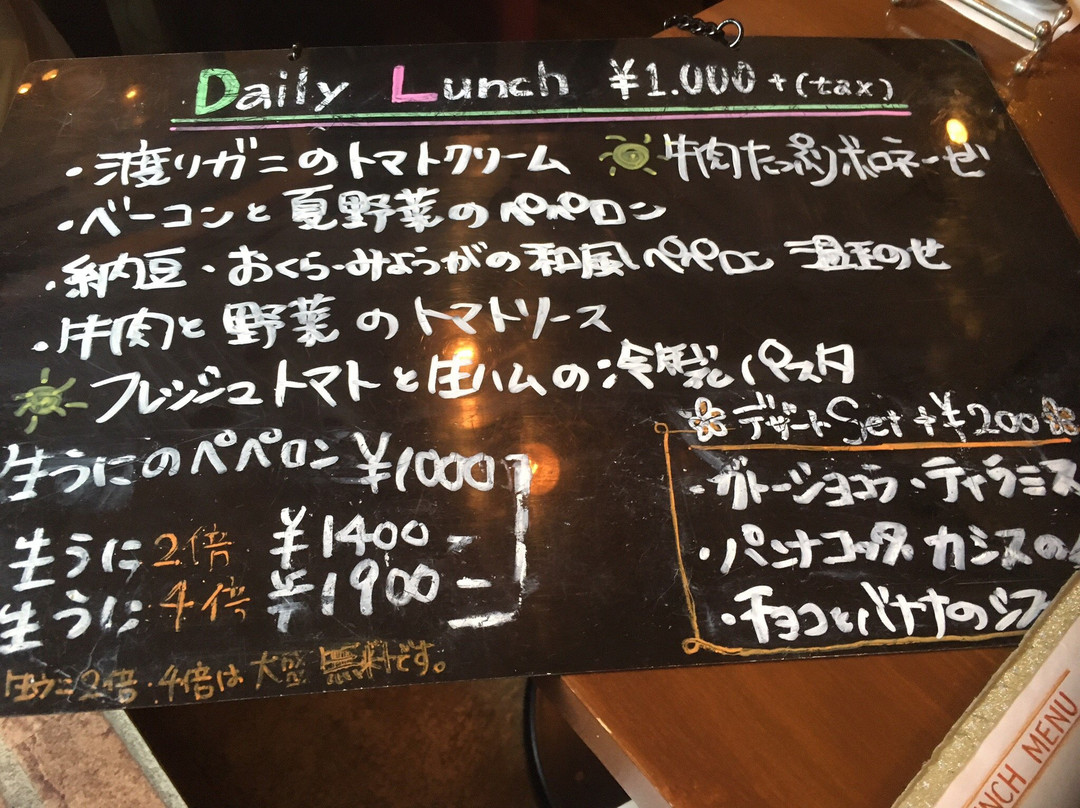 Daily Lunch ¥1.000+(tax)
・渡りガニのトマトクリーム 牛肉たっぷりボロネーゼ
・ベーコンと夏野菜のペペロン
・納豆・おくら・みょうがの和風ペペロン 温玉のせ
・牛肉と野菜のトマトソース
フレッシュトマトと生ハムの冷製パスタ
デザートSet+¥200
生うにのペペロン ¥1000
・ガトーショコラ・ティラミス
生うに2倍 ¥1400-
・パンナコッタ カシスの
生うに4倍 ¥1900-
・チョコとバナナのシフ
生ウニ2倍・4倍は大盛無料です。
LUNCH MENU